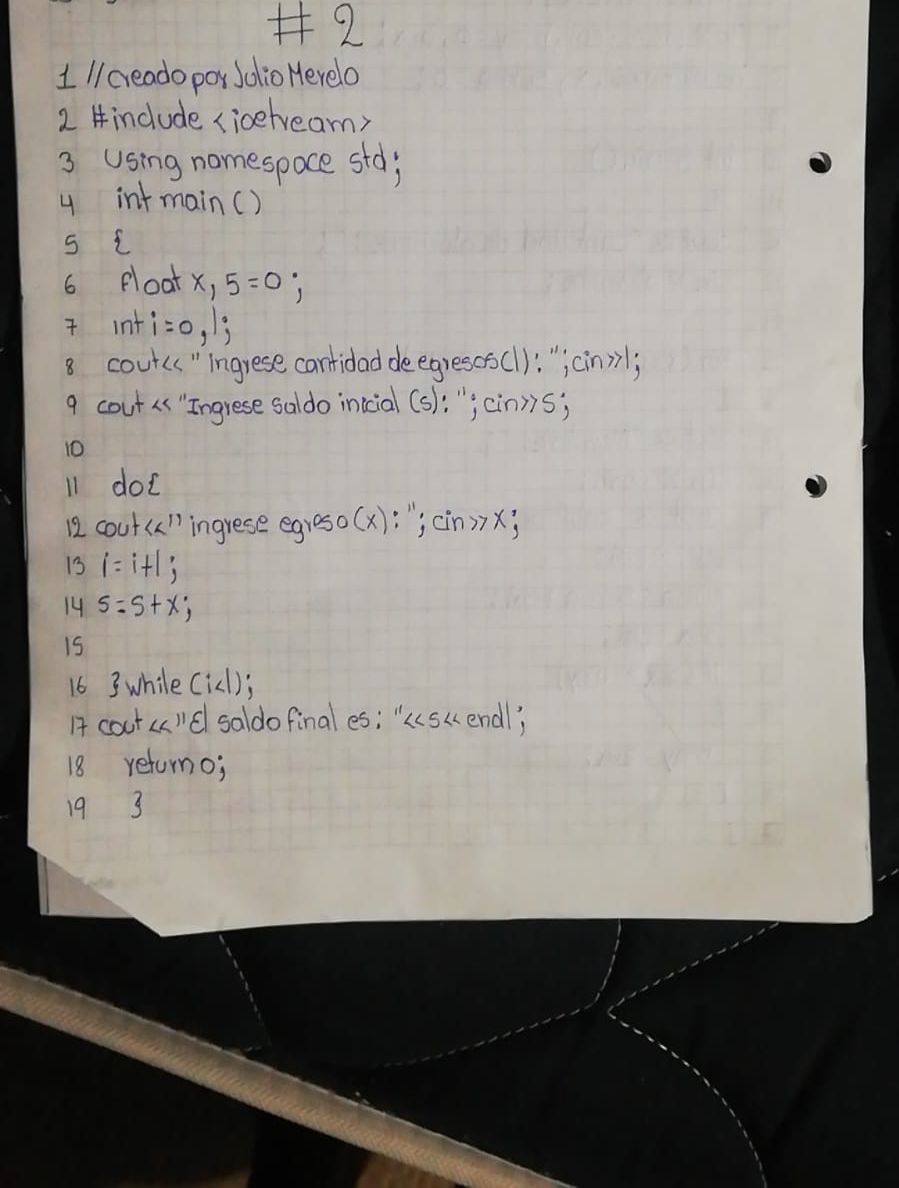 # 2
1 //Creado por Julio Merelo
2 #include <ioetream>
3 Using nomespace std;
4 int main ()
5 {
6 float x, 5=0;
7 int i=0,l;
8 cout<<" ingrese cantidad de egresos(l): ";cin>>l;
9 cout << "Ingrese saldo inicial (s): "; cin>>s;
10
11 do{
12 cout<<" ingrese egreso(x): "; cin>>x;
13 i=i+1;
14 s=s+x;
15
16 }while (i<l);
17 cout <<"El saldo final es: "<<s<<endl;
18 return 0;
19 }